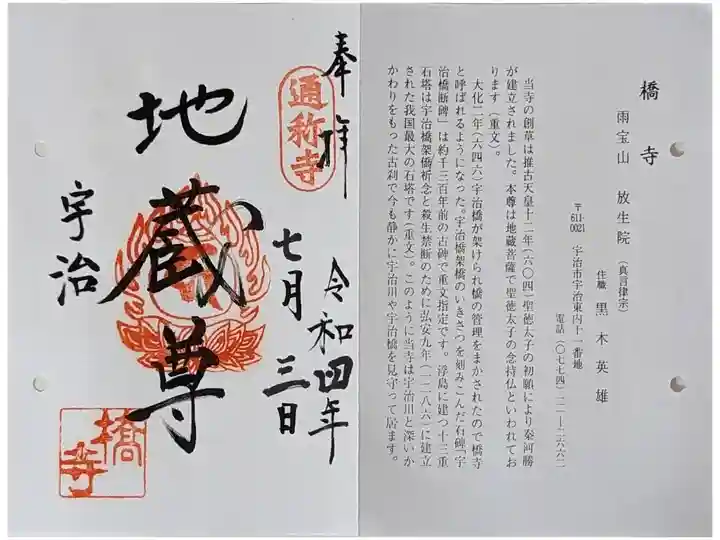 橋寺
雨宝山 放生院 (真言律宗)
住職 黒木英雄
〒611-0021 宇治市宇治東内十一番地
電話(〇七七四)二一―二六六二
当寺の創草は推古天皇十二年(六〇四)聖徳太子の初願により秦河勝
が建立されました。本尊は地蔵菩薩で聖徳太子の念持仏といわれてお
ります(重文)。
大化二年(六四六)宇治橋が架けられ橋の管理をまかされたので橋寺
と呼ばれるようになった。宇治橋架橋のいきさつを刻みこんだ石碑「宇
治橋断碑」は約千三百年前の古碑で重文指定です。浮島に建つ十三重
石塔は宇治橋架橋祈念と殺生禁断のために弘安九年(一二八六)に建立
された我国最大の石塔です(重文)。このように当寺は宇治川と深いか
かわりをもった古刹で今も静かに宇治川や宇治橋を見守って居ます。
奉拝
通称寺
令和四年
七月三日
地蔵尊
宇治
橋寺